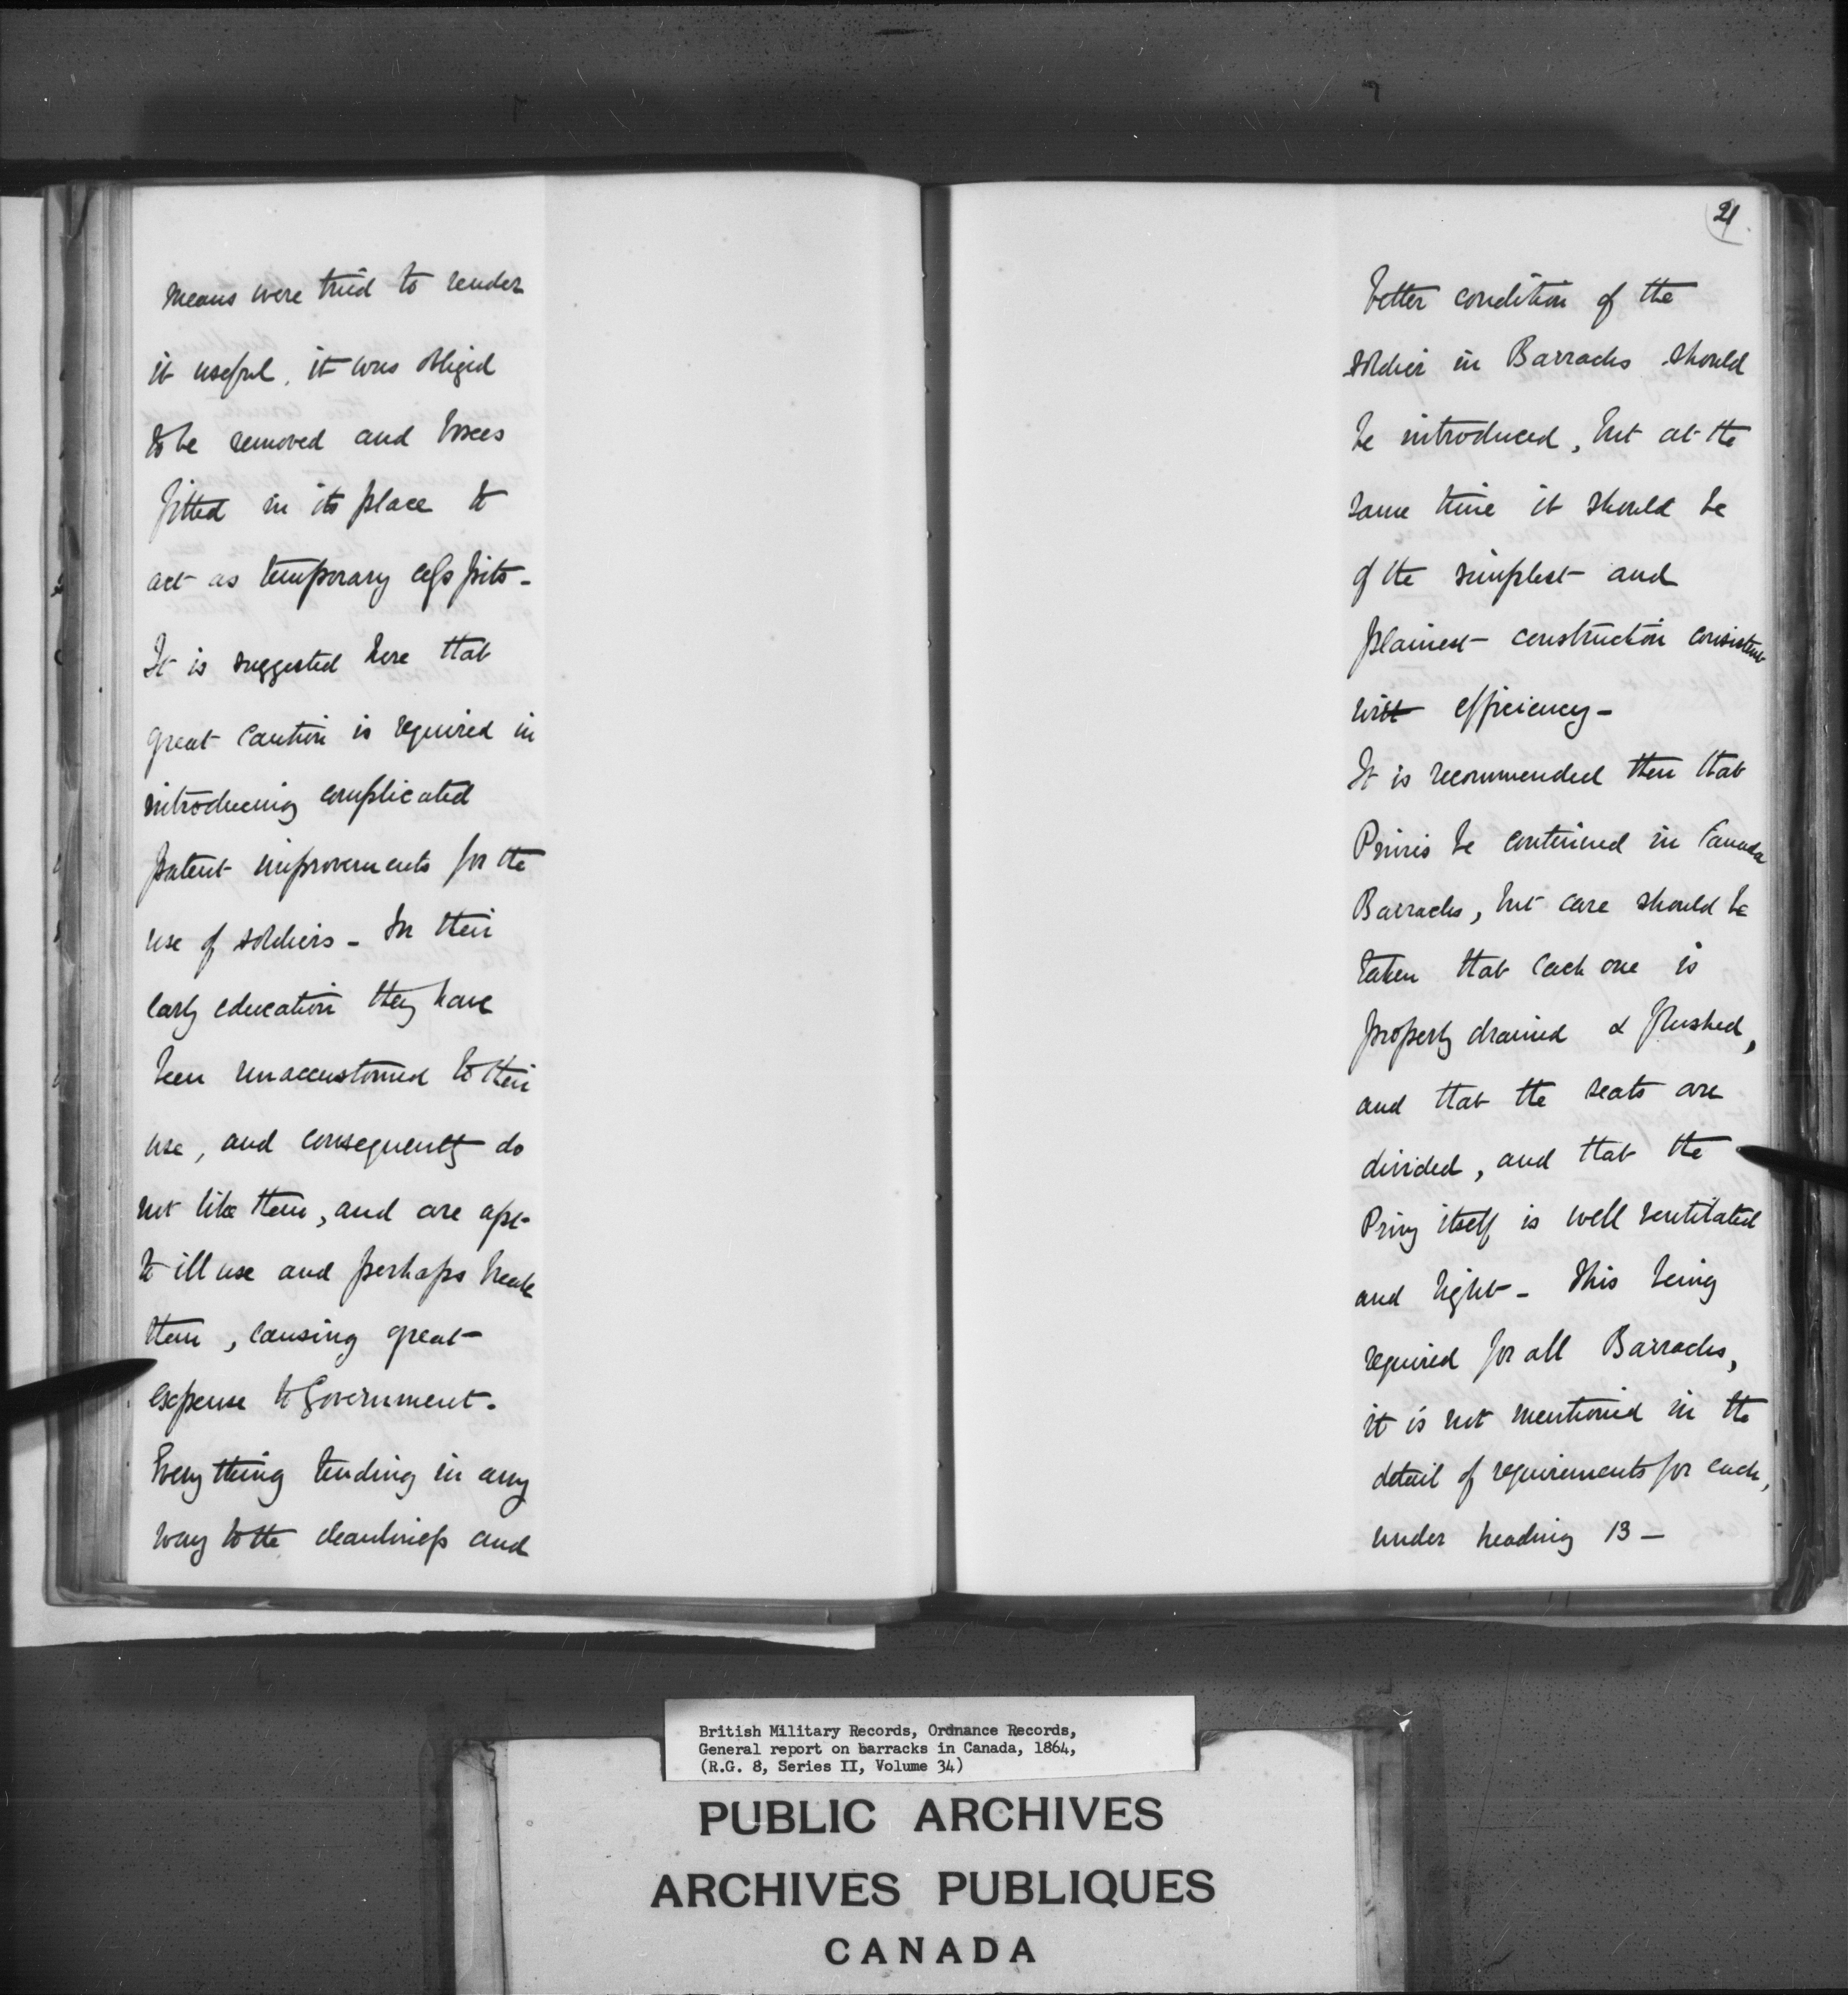 means were tried to render
it useful, it was obliged
to be removed and boxes
fitted in its place to
act as temporary cess pits -
It is suggested here that
great caution is required in
introducing complicated
patent improvements for the
use of soldiers - In their
early education they have
been unaccustomed to their
use, and consequently do
not like them, and are apt
to ill use and perhaps break
them, causing great
expense to Government.
Every thing tending in any
way to the cleanliness and
21
better condition of the
soldier in Barracks should
be introduced, but at the
same time it should be
of the simplest and
plainest construction consistent
with efficiency -
It is recommended then that
Privies be continued in Canada
Barracks, but care should be
taken that each one is
properly drained & flushed,
and that the seats are
divided, and that the
Privy itself is well ventilated
and light - This being
required for all Barracks,
it is not mentioned in the
detail of requirements for each,
under heading 13 -
British Military Records, Ordnance Records,
General report on barracks in Canada, 1864,
(R.G. 8, Series II, Volume 34)
PUBLIC ARCHIVES
ARCHIVES PUBLIQUES
CANADA